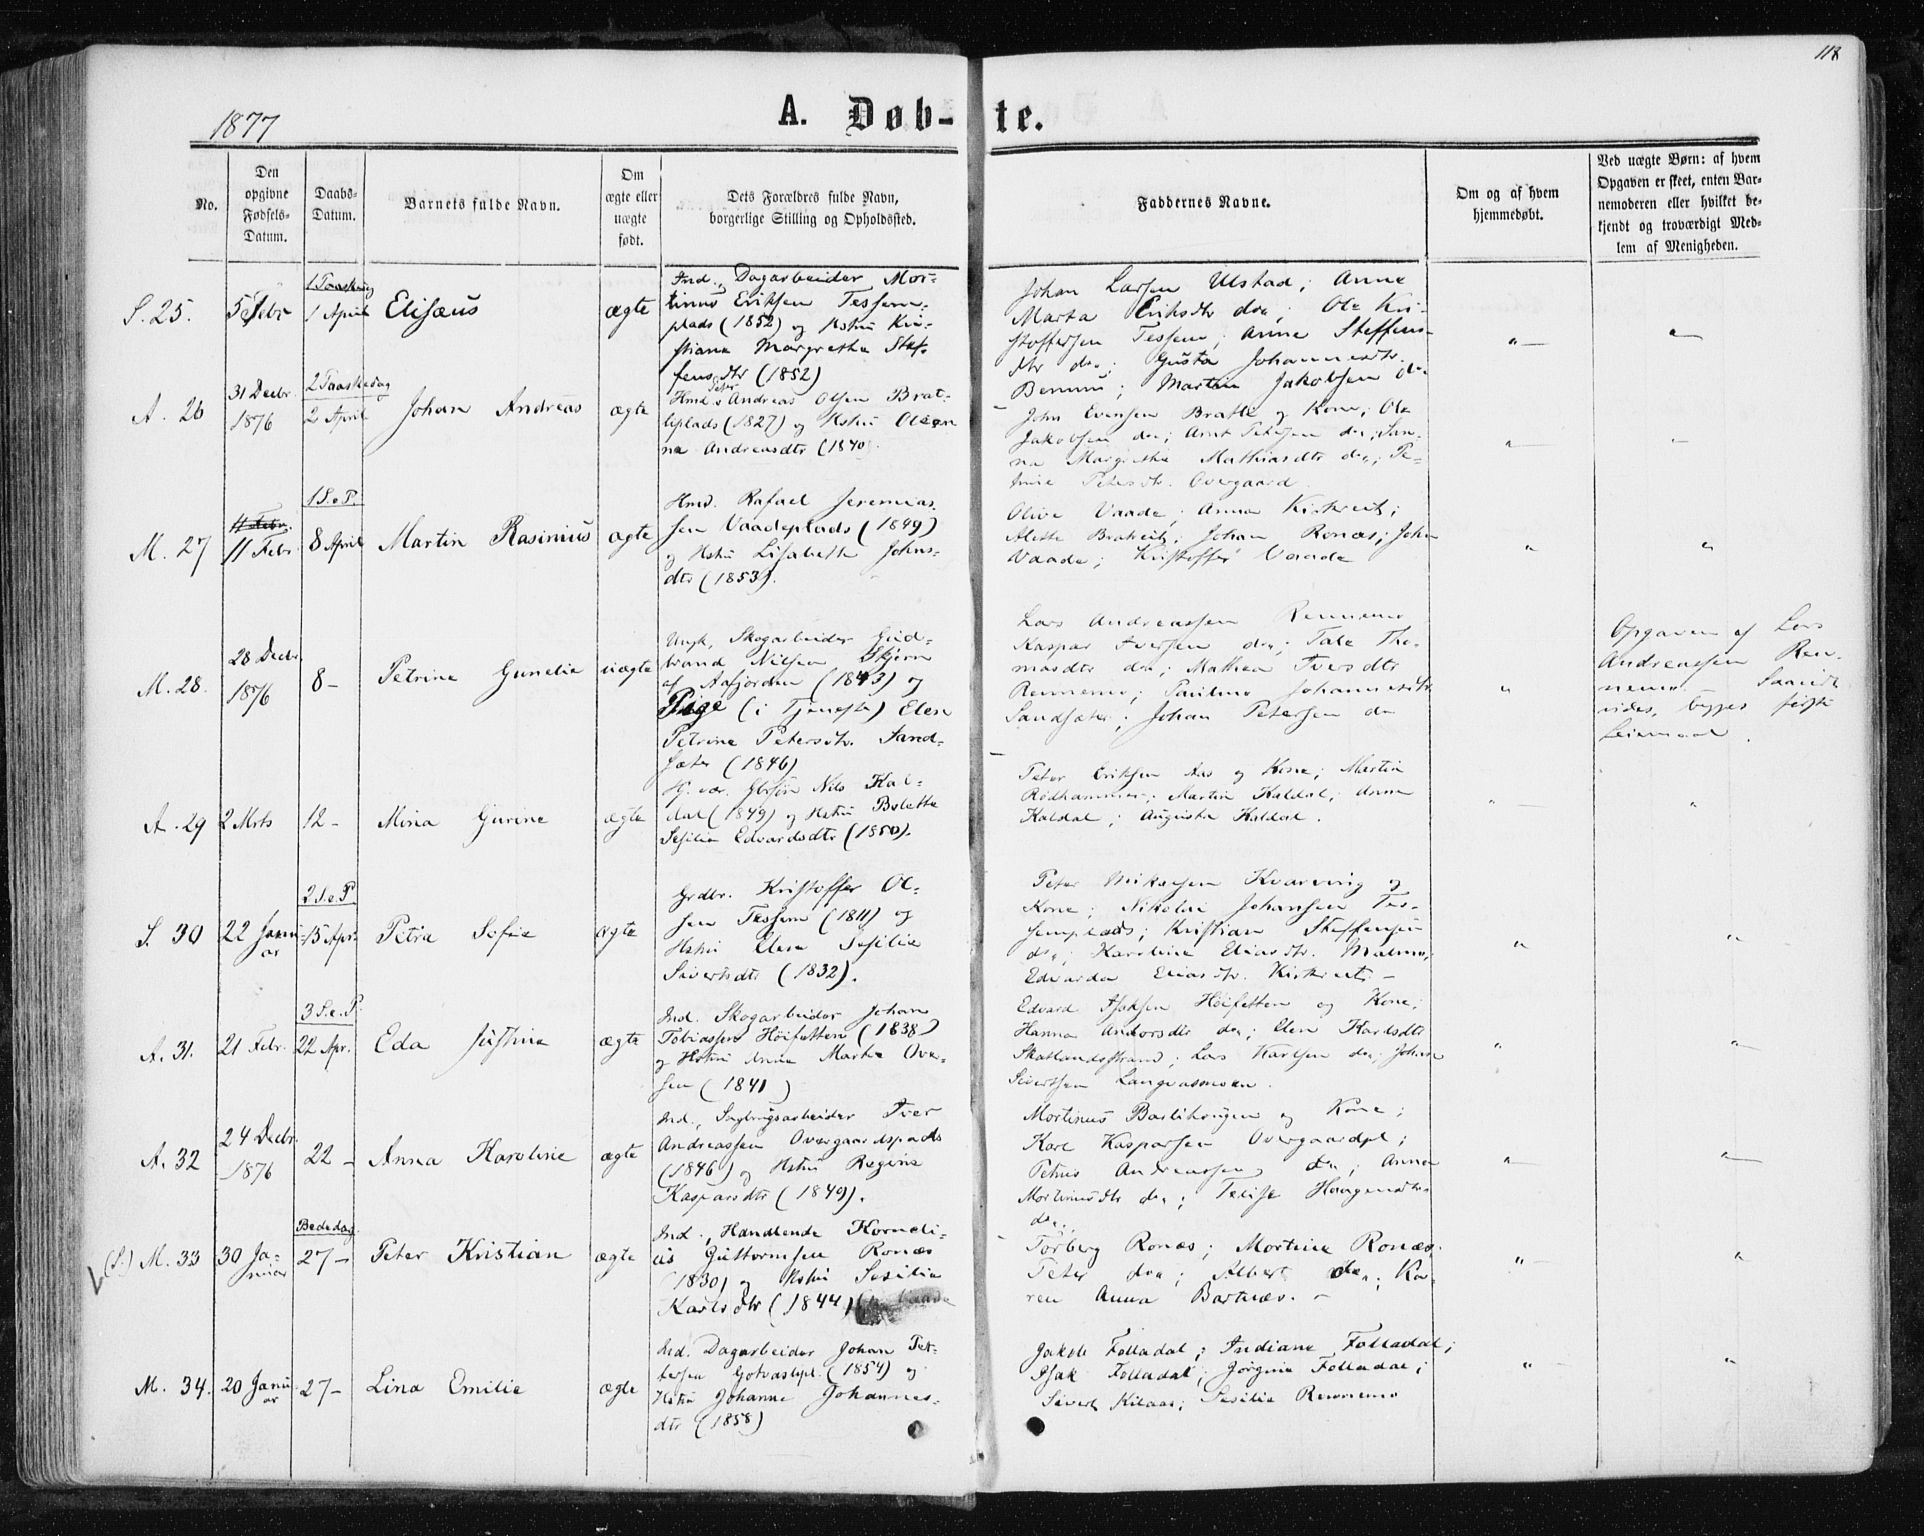 118
1877
A. Døb-te.
No.
Den
opgivne
Fødsels-
Datum.
Daabs-
Datum.
Barnets fulde Navn.
Om
ægte eller
uægte
født.
Dets Forældres fulde Navn,
borgerlige Stilling og Opholdssted.
Faddernes Navne.
Om og af hvem
hjemmedøbt.
Ved uægte Børn: af hvem
Opgaven er skeet, enten Bar-
nemoderen eller hvilket be-
kjendt og troværdigt Med-
lem af Menigheden.
S. 25.
5 Febr
1 Paaskedag
1 April
Elisæus
ægte
Ind., Dagarbeider Mor-
tinus Eriksen Tessem-
plads (1852) og Hstru Kri-
stiana Margretha Stef-
fensdtr (1852)
Johan Larsen Ulstad; Anne
Marta Eriksdtr do.; Ole Kri-
stoffersen Tessem; Anne Steffens-
dtr do.; Gusta Johannesdtr.
Benum; Martin Jakobsen do
A. 26
31 Decbr.
1876
2 Paaskedag
2 April
Johan Andreas
ægte
Hmd. Peter Andreas Olsen Brat-
liplads (1827) og Hstru Olean-
na Andreasdtr (1840).
John Evensen Bratli og Kone; Ole
Jakobsen do.; Arnt Petersen do.; San-
na Margretha Mathiasdtr do.; Pe-
trine Petersdtr. Overgaard.
M. 27
11 Febr.
11 Febr.
1 S. e. P.
8 April
Martin Rasinius
ægte
Hmd. Rafael Jeremias-
sen Vaadeplads (1849)
og Hstru Lisabeth Johns-
dtr (1853).
Olive Vaade; Anna Kirkreit;
Alette Bratreit; Johan Ronæs; John
Vaade; Kristoffer Vaade
M. 28.
28 Decbr.
1876
8 -
Petrine Gunelie
uægte
Ungk., Skogarbeider Gud-
brand Nilsen Skjern
af Aafjorden (1843) og
Pige (i Tjeneste) Elen
Petrine Petersdtr. Sand-
sæter (1846)
Lars Andreassen Rennemo
Kaspar Iversen do.; Tale Tho-
masdtr do.; Mathea Iversdtr
Rennemo; Pauline Johannesdtr.
Sandsæter; Johan Petersen do
Opgaven af Lars
Andreassen Ren-
nemo. Saavidt
vides, begges første
Leiermaal.
A. 29
2 Mrts
12 -
Mina Gurine
ægte
Nils Kal-
dal (1849) og Hstru Boletta
Sesilia Edvardsdtr (1850).
Peter Eriksen Aas og Kone; Martin
Rødhammer; Martin Kaldal; Anna
Kaldal; Augusta Kaldal.
S. 30
22 Janu-
ar
2 S. e. P.
15 Apr.
Petra Sofie
ægte
Grdbr. Kristoffer Ol-
sen Tessem (1811) og
Hstru Elen Sesilia
Sivertsdtr (1832).
Peter Mikaelsen Kvarving og
Kone; Nikolai Johansen Tes-
semplads; Kristian Steffensen
do.; Karoline Eliasdtr. Malmo;
Edvarda Eliasdtr. Kirkreit. -
A. 31.
21 Febr.
3 S. e. P.
22 Apr.
Eda Justine
ægte
Ind. Skogarbeider Johan
Tobiassen Høifetten (1838)
og Hstru Anne Marta Ove-
sen (1841)
Edvard Isaksen Høifetten og Kone;
Hanna Andersdtr do.; Elen Karlsdtr
Skatlandsstrand; Lars Karlsen do.; Johan
Sivertsen Langvasmoen.
A. 32
24 Decbr.
1876
22 -
Anna Karoline
ægte
Ind., Sagbrugsarbeider Iver
Andreassen Overgaardsplads
(1846) og Hstru Regine
Kasparsdtr (1849).
Mortinus Barlihougen og Kone;
Karl Kasparsen Overgaardpl;
Petrus Andreassen do; Anna
Mortinusdtr do.; Haagensdtr
do.
(S.) M. 33
30 Ja-
nuar
Bededag
27 -
Peter Kristian
ægte
Ind., Handlende Korneli-
us Guttormsen Ronæs
(1830) og Hstru Sesilia
Karlsdtr (1844)
Torberg Ronæs; Mortine Ronæs.
Peter do.; Albert do.; Ka-
ren Anna Bartnæs. -
M. 34.
20 Janu-
ar
27 -
Lina Emilie
ægte
Ind. Dagarbeider Johan Pet-
tersen Gotvaslipl. (1854) og
Hstru Johanne Johannes-
dtr (1858)
Jakob Folladal; Indiane Folladal;
Isak Folladal; Jørgine Folladal;
Sivert Kilaas; Sesilia Rennemo